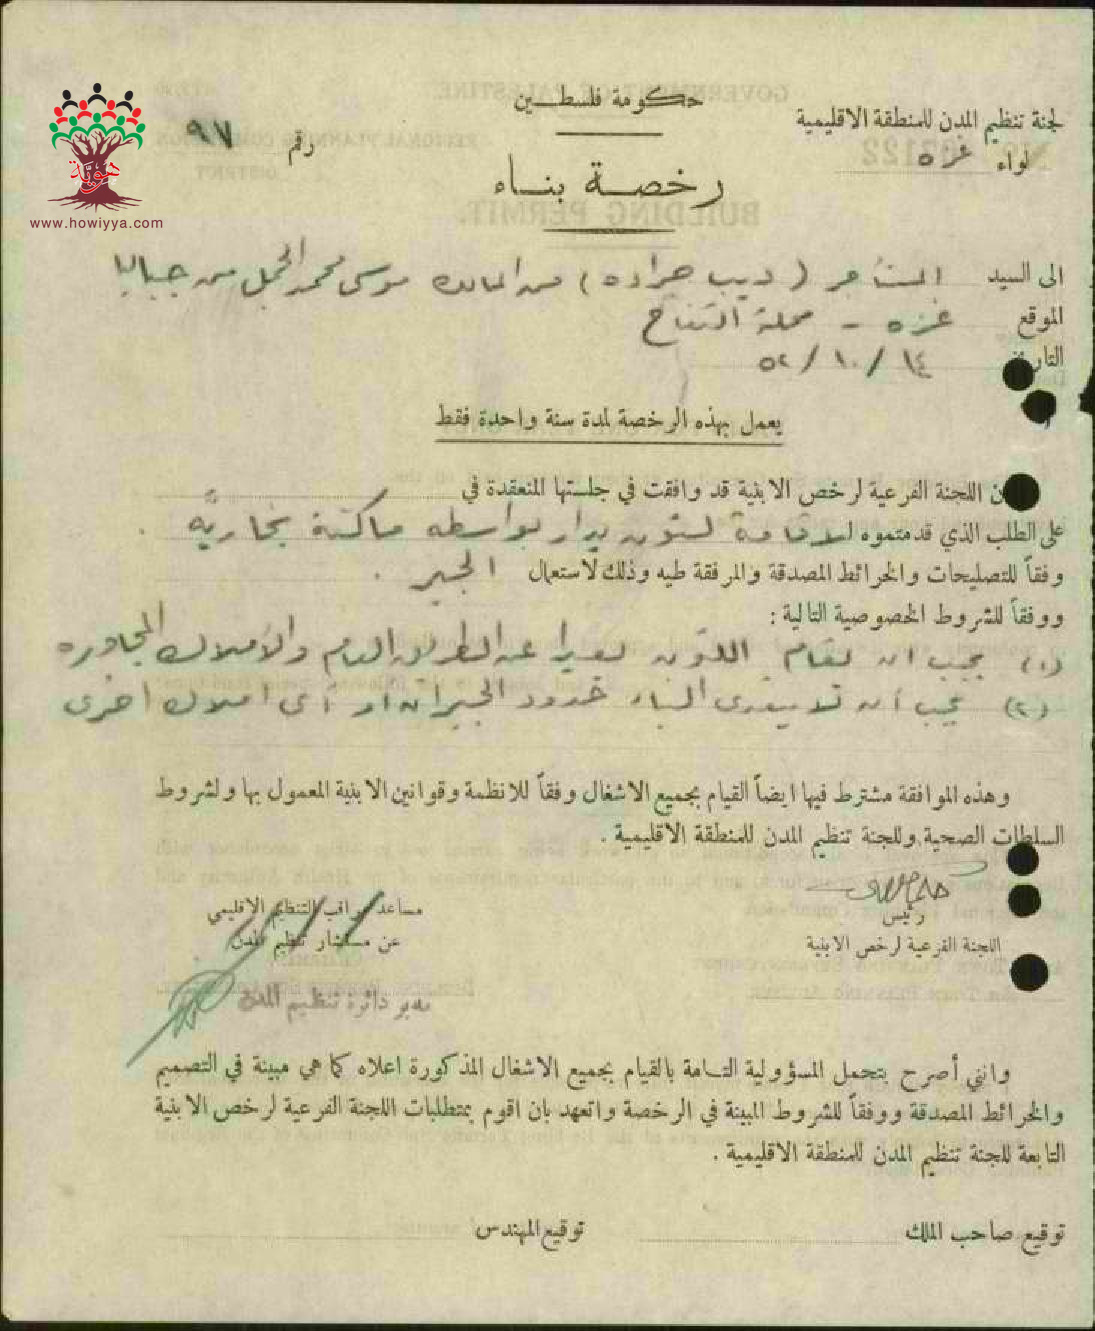 حكومة فلسطين
لجنة تنظيم المدن للمنطقة الاقليمية
لواء غزه
رقم ٩٧
رخصة بناء
هوية
www.howiyya.com
الى السيد المستأجر (ديب جراده) من المالك موسى محمد الجمل من جباليا
الموقع غزه - محلة التفاح
التاريخ ١٤/١٠/٥٢
يعمل بهذه الرخصة لمدة سنة واحدة فقط
ن اللجنة الفرعية لرخص الابنية قد وافقت في جلستها المنعقدة في
على الطلب الذي قدمتموه لاقامة لتون يدار بواسطه ماكنة بخاريه .
وفقاً للتصليحات والخرائط المصدقة والمرفقة طيه وذلك لاستعمال الجير .
ووفقاً للشروط الخصوصية التالية :
(١) يجب ان يقام اللتون بعيدا عن الطريق العام والأملاك المجاوره
(٢) يجب أن لا يتعدى البناء حدود الجيران او أى املاك اخرى
وهذه الموافقة مشترط فيها ايضاً القيام بجميع الاشغال وفقاً للانظمة وقوانين الابنية المعمول بها ولشروط
السلطات الصحية وللجنة تنظيم المدن للمنطقة الاقليمية .
رئيس
اللجنة الفرعية لرخص الابنية
مساعد مراقب التنظيم الاقليمي
عن مستشار تنظيم المدن
مدير دائرة تنظيم المدن
وانني أصرح بتحمل المسؤولية التامة بالقيام بجميع الاشغال المذكورة اعلاه كما هي مبينة في التصميم
والخرائط المصدقة ووفقاً للشروط المبينة في الرخصة واتعهد بان اقوم بمتطلبات اللجنة الفرعية لرخص الابنية
التابعة للجنة تنظيم المدن للمنطقة الاقليمية .
توقيع صاحب الملك
توقيع المهندس